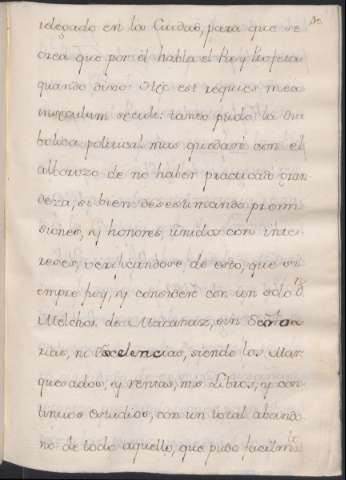 relegado en los Ciudad, para que se
crea que por el habla el Rey Profeta
quando dixo: Hec est requies mea
in seculum seculi: tanto pudo la dia
bolica politica! mas quedase con el
alborozo de no haber practicado gran
deza, si bien desestimando promi
siones, y honores, unidos con inter
eses, verificandose de esto, que si
empre fuy, y conoceré con un solo D.ⁿ
Melchor de Macanaz, sin Secreta
rias, ni Excelencias, siendo los Mar
quesados, y rentas, mis Libros, y con
tinuos estudios, con un total abando
no de todo aquello, que pudo facilm.te